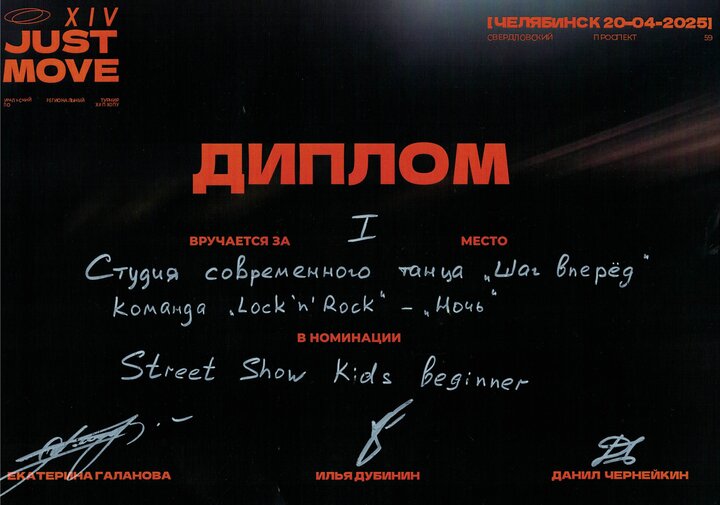 XIV
JUST
MOVE
УРАЛЬСКИЙ РЕГИОНАЛЬНЫЙ ТУРНИР
ПО ХИП ХОПУ
[ЧЕЛЯБИНСК 20-04-2025]
СВЕРДЛОВСКИЙ ПРОСПЕКТ 59
ДИПЛОМ
ВРУЧАЕТСЯ ЗА I МЕСТО
Студия современного танца „Шаг вперёд"
команда „Lock'n'Rock" – „Ночь"
В НОМИНАЦИИ
Street Show Kids beginner
ЕКАТЕРИНА ГАЛАНОВА ИЛЬЯ ДУБИНИН ДАНИЛ ЧЕРНЕЙКИН